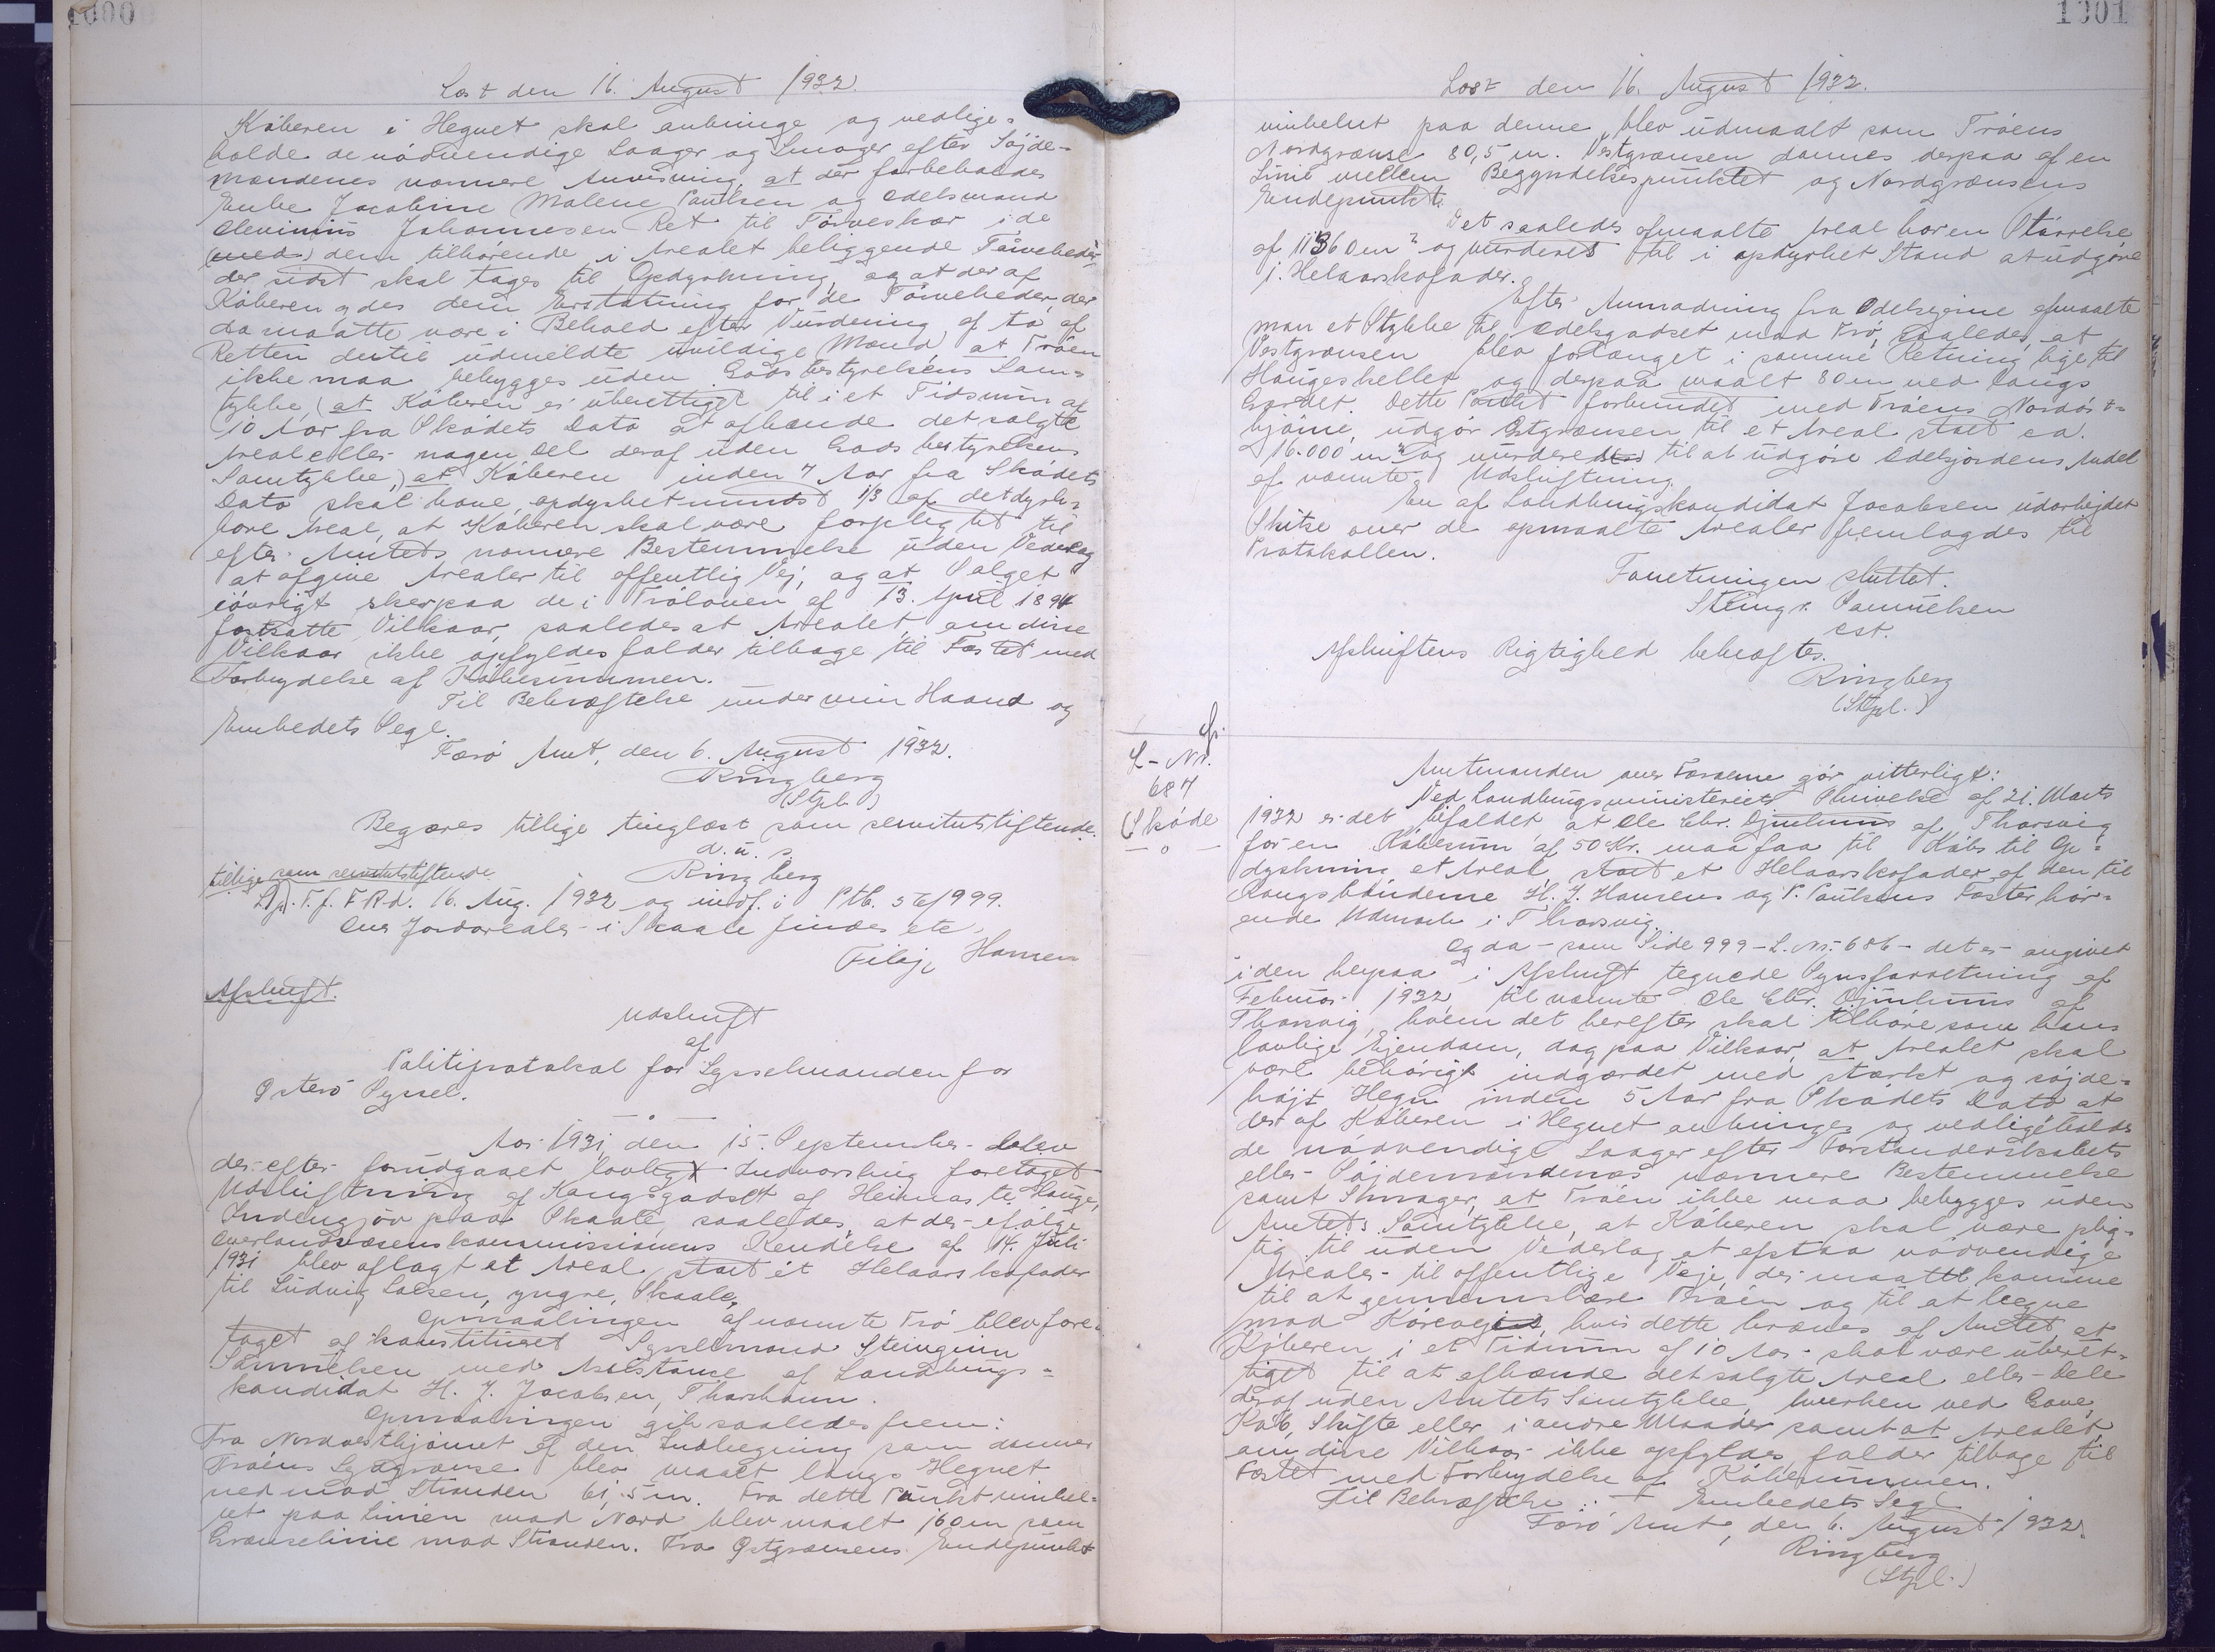 1000
Læst den 16. August 1932.
Køberen i Hegnet skal anbringe og vedlige-
holde de nødvendige Laager og Smoger efter Søjde-
mændenes nærmere Anvisning, at der forbeholdes
Enke Jacobine Malene Paulsen og Odelsmand
Clevinius Johannesen Ret til Tørveskær i de
(med) dem tilhørende i Arealet beliggende Tørveheder,
der sidst skal tages til Opdyrkning, og at der af
Køberen ydes dem Erstatning for de Tørveheder, der
da maatte være i Behold efter Vurdering af to af
Retten dertil udmeldte uvildige Mænd, at Trøen
ikke maa bebygges uden Godsbestyrelsens Sam-
tykke, at Køberen er uberettiget til i et Tidsrum af
10 Aar fra Skødets Dato at afhænde det solgte
Areal eller nogen Del deraf uden Godsbestyrelsens
Samtykke, at Køberen inden 7 Aar fra Skødets
Dato skal have opdyrket mindst 1/3 af det dyrk-
bare Areal, at Køberen skal være forpligtet til
efter Amtets nærmere Bestemmelse uden Vederlag
at afgive Arealer til offentlig Vej, og at Salget
iøvrigt sker paa de i Trøloven af 13. April 1894
fastsatte Vilkaar, saaledes at Arealet, om disse
Vilkaar ikke opfyldes falder tilbage til Fæstet med
Forbrydelse af Købesummen.
Til Bekræftelse under min Haand og
Embedets Segl.
Færø Amt, den 6. August 1932.
Ringberg
(Stpl.)
Begæres tillige tinglæst som servitutstiftende.
d. u. s.
Ringberg
tillige som servitutstiftende
Lyst i. F. f. F. R. d. 16. Aug. 1932 og indf. i Ptb. 5 fol 999.
Over Jordarealer i Skaale findes etc.
Filip Hansen
Afskrift.
Udskrift
af
Politiprotokol for Sysselmanden for
Østerø Syssel.
Aar 1931, den 15. September blev
der efter forudgaaet lovligt Indvarsling foretaget
Udskiftning af Kongsgodset af Heimasta Hauge,
Indengjov paa Skaale, saaledes, at der ifølge
Overlandvæsenskommissionens Kendelse af 14. Juli
1931 blev aflagt et Areal, stort et Helaarskofoder
til Ludvig Olsen, yngre, Skaale.
Opmaalingen af nævnte Trø blev fore-
taget af konstitueret Sysselmand Steingrim
Samuelsen med Assistance af Landbrugs-
kandidat H. J. Jacobsen, Thorshavn.
Opmaalingen gik saaledes frem:
Fra Nordvesthjørnet af den Indhegning som danner
Trøens Sydgrænse blev maalt langs Hegnet
ned mod Stranden 61,5 m. Fra dette Punkt vinkel-
ret paa Linien mod Nord blev maalt 160 m som
Grænselinie mod Stranden. Fra Østgrænsens Endepunkt
1001
Læst den 16. August 1932.
vinkelret paa denne blev udmaalt som Trøens
Nordgrænse 80,5 m. Vestgrænsen dannes derpaa af en
Linie mellem Begyndelsespunktet og Nordgrænsens
Endepunkt.
Det saaledes opmaalte Areal har en Størrelse
af 11360 m² og vurderes til i opdyrket Stand at udgøre
1. Helaarskofoder.
Efter Anmodning fra Odelsejerne opmaalte
man et Stykke til Odelsgodset mod Trø, saaledes, at
Vestgrænsen blev forlænget i samme Retning lige til
Haugeskellet og derpaa maalt 80 m ned langs
Gærdet. Dette Punkt forbundet med Trøens Nordøst-
hjørne, udgør Østgrænsen til et Areal stort ca.
16.000 m² og vurderedes til at udgøre Odelsjordens Andel
af nævnte Udskiftning.
En af Landbrugskandidat Jacobsen udarbejdet
Skitse over de opmaalte Arealer fremlagdes til
Protokollen.
Forretningen sluttet.
Steingr. Samuelsen
cst.
Afskriftens Rigtighed bekræftes.
Ringberg
(Stpl.)
cfr.
L-Nr.
687
Skøde
— o —
Amtmanden over Færøerne gør vitterligt:
Ved Landbrugsministeriets Skrivelse af 21. Marts
1932 er det bifaldet at Ole Chr. Djurhuus af Thorsvig
for en Købesum af 50 Kr. maa faa til Købs til Op-
dyrkning et Areal, stort et Helaarskofoder af den til
Kongsbønderne H. J. Hansens og P. Poulsens Fæster hør-
ende Udmark i Thorsvig.
Og da - som Side 999 - L. Nr. 686 - det er angivet
i den herpaa i Afskrift tegnede Synsforretning af
Februar 1932 til nævnte Ole Chr. Djurhuus af
Thorsvig, hvem det herefter skal tilhøre som hans
lovlige Ejendom, dog paa Vilkaar, at Arealet skal
være behørigt indgærdet med stærkt og søjde-
højt Hegn inden 5 Aar fra Skødets Dato at
der af Køberen i Hegnet anbringes og vedligeholdes
de nødvendige Laager efter Forstanderskabets
eller Søjdemændenes nærmere Bestemmelse
samt Smoger, at Trøen ikke maa bebygges uden
Amtets Samtykke, at Køberen skal være plig-
tig til uden Vederlag at afstaa nødvendige
Arealer til offentlige Veje, der maatte komme
til at gennemskære Trøen og til at hegne
mod Køreveje, hvis dette kræves af Amtet at
Køberen i et Tidsrum af 10 Aar skal være uberet-
tiget til at afhænde det solgte Areal eller Dele
deraf uden Amtets Samtykke, hverken ved Gave,
Køb, Skifte eller i andre Maader samt at Arealet,
om disse Vilkaar ikke opfyldes falder tilbage til
Fæstet med Forbrydelse af Købesummen.
Til Bekræftelse :: Embedets Segl
Færø Amt, den 6. August 1932.
Ringberg
(Stpl.)